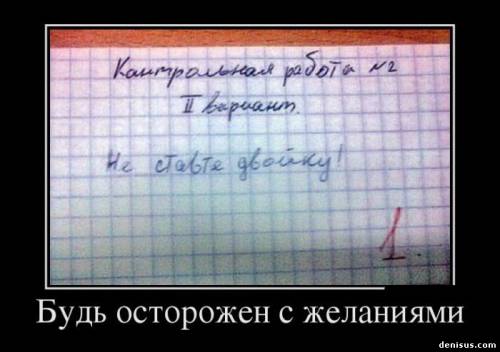 Контрольная работа №2
II вариант.
Не ставте двойку!
1
Будь осторожен с желаниями
denisus.com